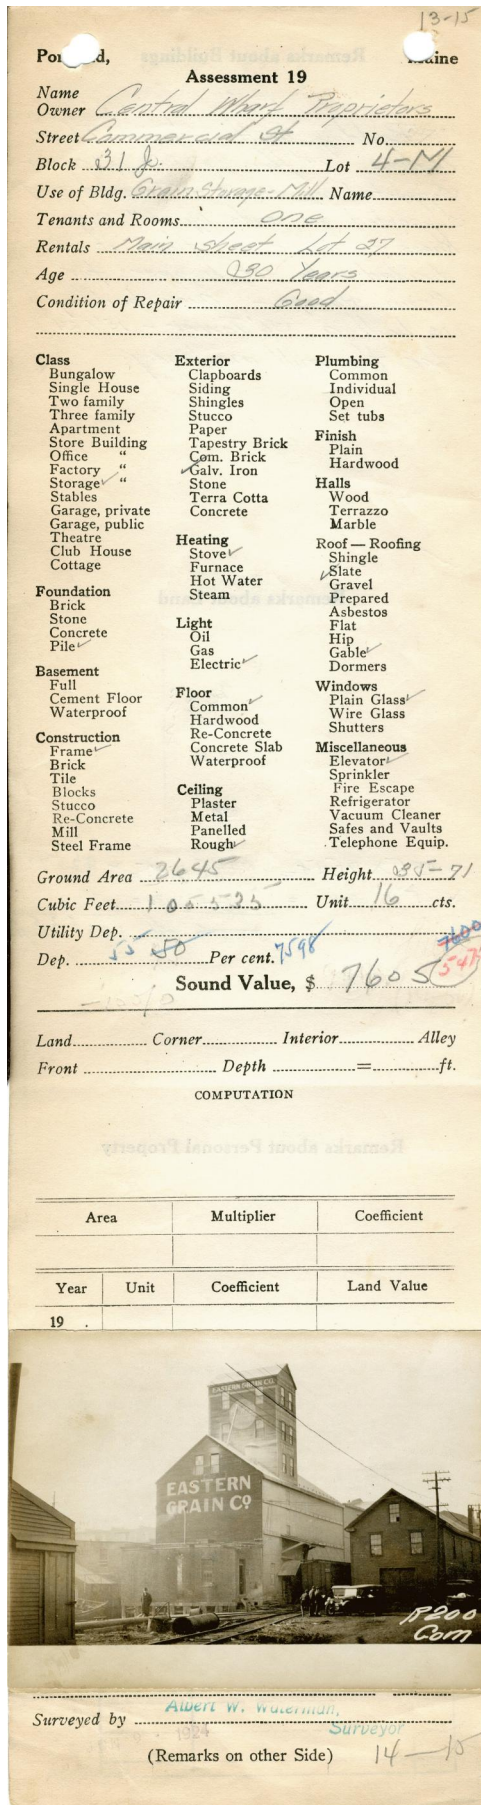 13-15
Maine
Assessment 19
Name
Owner Central Wharf Proprietors
Street Commercial St No.
Block 31 J. Lot 4-M
Use of Bldg. Grain Storage-Mill Name
Tenants and Rooms one
Rentals Main Sheet Lot 27
Age 30 Years
Condition of Repair Good
Class
Bungalow
Single House
Two family
Three family
Apartment
Store Building
Office "
Factory "
Storage ✓ "
Stables
Garage, private
Garage, public
Theatre
Club House
Cottage
Foundation
Brick
Stone
Concrete
Pile ✓
Basement
Full
Cement Floor
Waterproof
Construction
Frame ✓
Brick
Tile
Blocks
Stucco
Re-Concrete
Mill
Steel Frame
Exterior
Clapboards
Siding
Shingles
Stucco
Paper
Tapestry Brick
Com. Brick
✓ Galv. Iron
Stone
Terra Cotta
Concrete
Heating
Stove ✓
Furnace
Hot Water
Steam
Light
Oil
Gas
Electric ✓
Floor
Common ✓
Hardwood
Re-Concrete
Concrete Slab
Waterproof
Ceiling
Plaster
Metal
Panelled
Rough ✓
Plumbing
Common
Individual
Open
Set tubs
Finish
Plain
Hardwood
Halls
Wood
Terrazzo
Marble
Roof — Roofing
Shingle
✓ Slate
Gravel
Prepared
Asbestos
Flat
Hip
Gable ✓
Dormers
Windows
Plain Glass ✓
Wire Glass
Shutters
Miscellaneous
Elevator ✓
Sprinkler
Fire Escape
Refrigerator
Vacuum Cleaner
Safes and Vaults
Telephone Equip.
Ground Area 2645 Height 35-71
Cubic Feet 105525 Unit 16 cts.
Utility Dep.
7600
Dep. 55 50 Per cent. 7598
Sound Value, $ 7605
Land Corner Interior Alley
Front Depth = ft.
COMPUTATION
Area Multiplier Coefficient
Year Unit Coefficient Land Value
19 .
EASTERN GRAIN CO.
EASTERN
GRAIN CO
R200
Com
Albert W. Waterman,
Surveyed by Surveyor
1924
(Remarks on other Side) 14-15